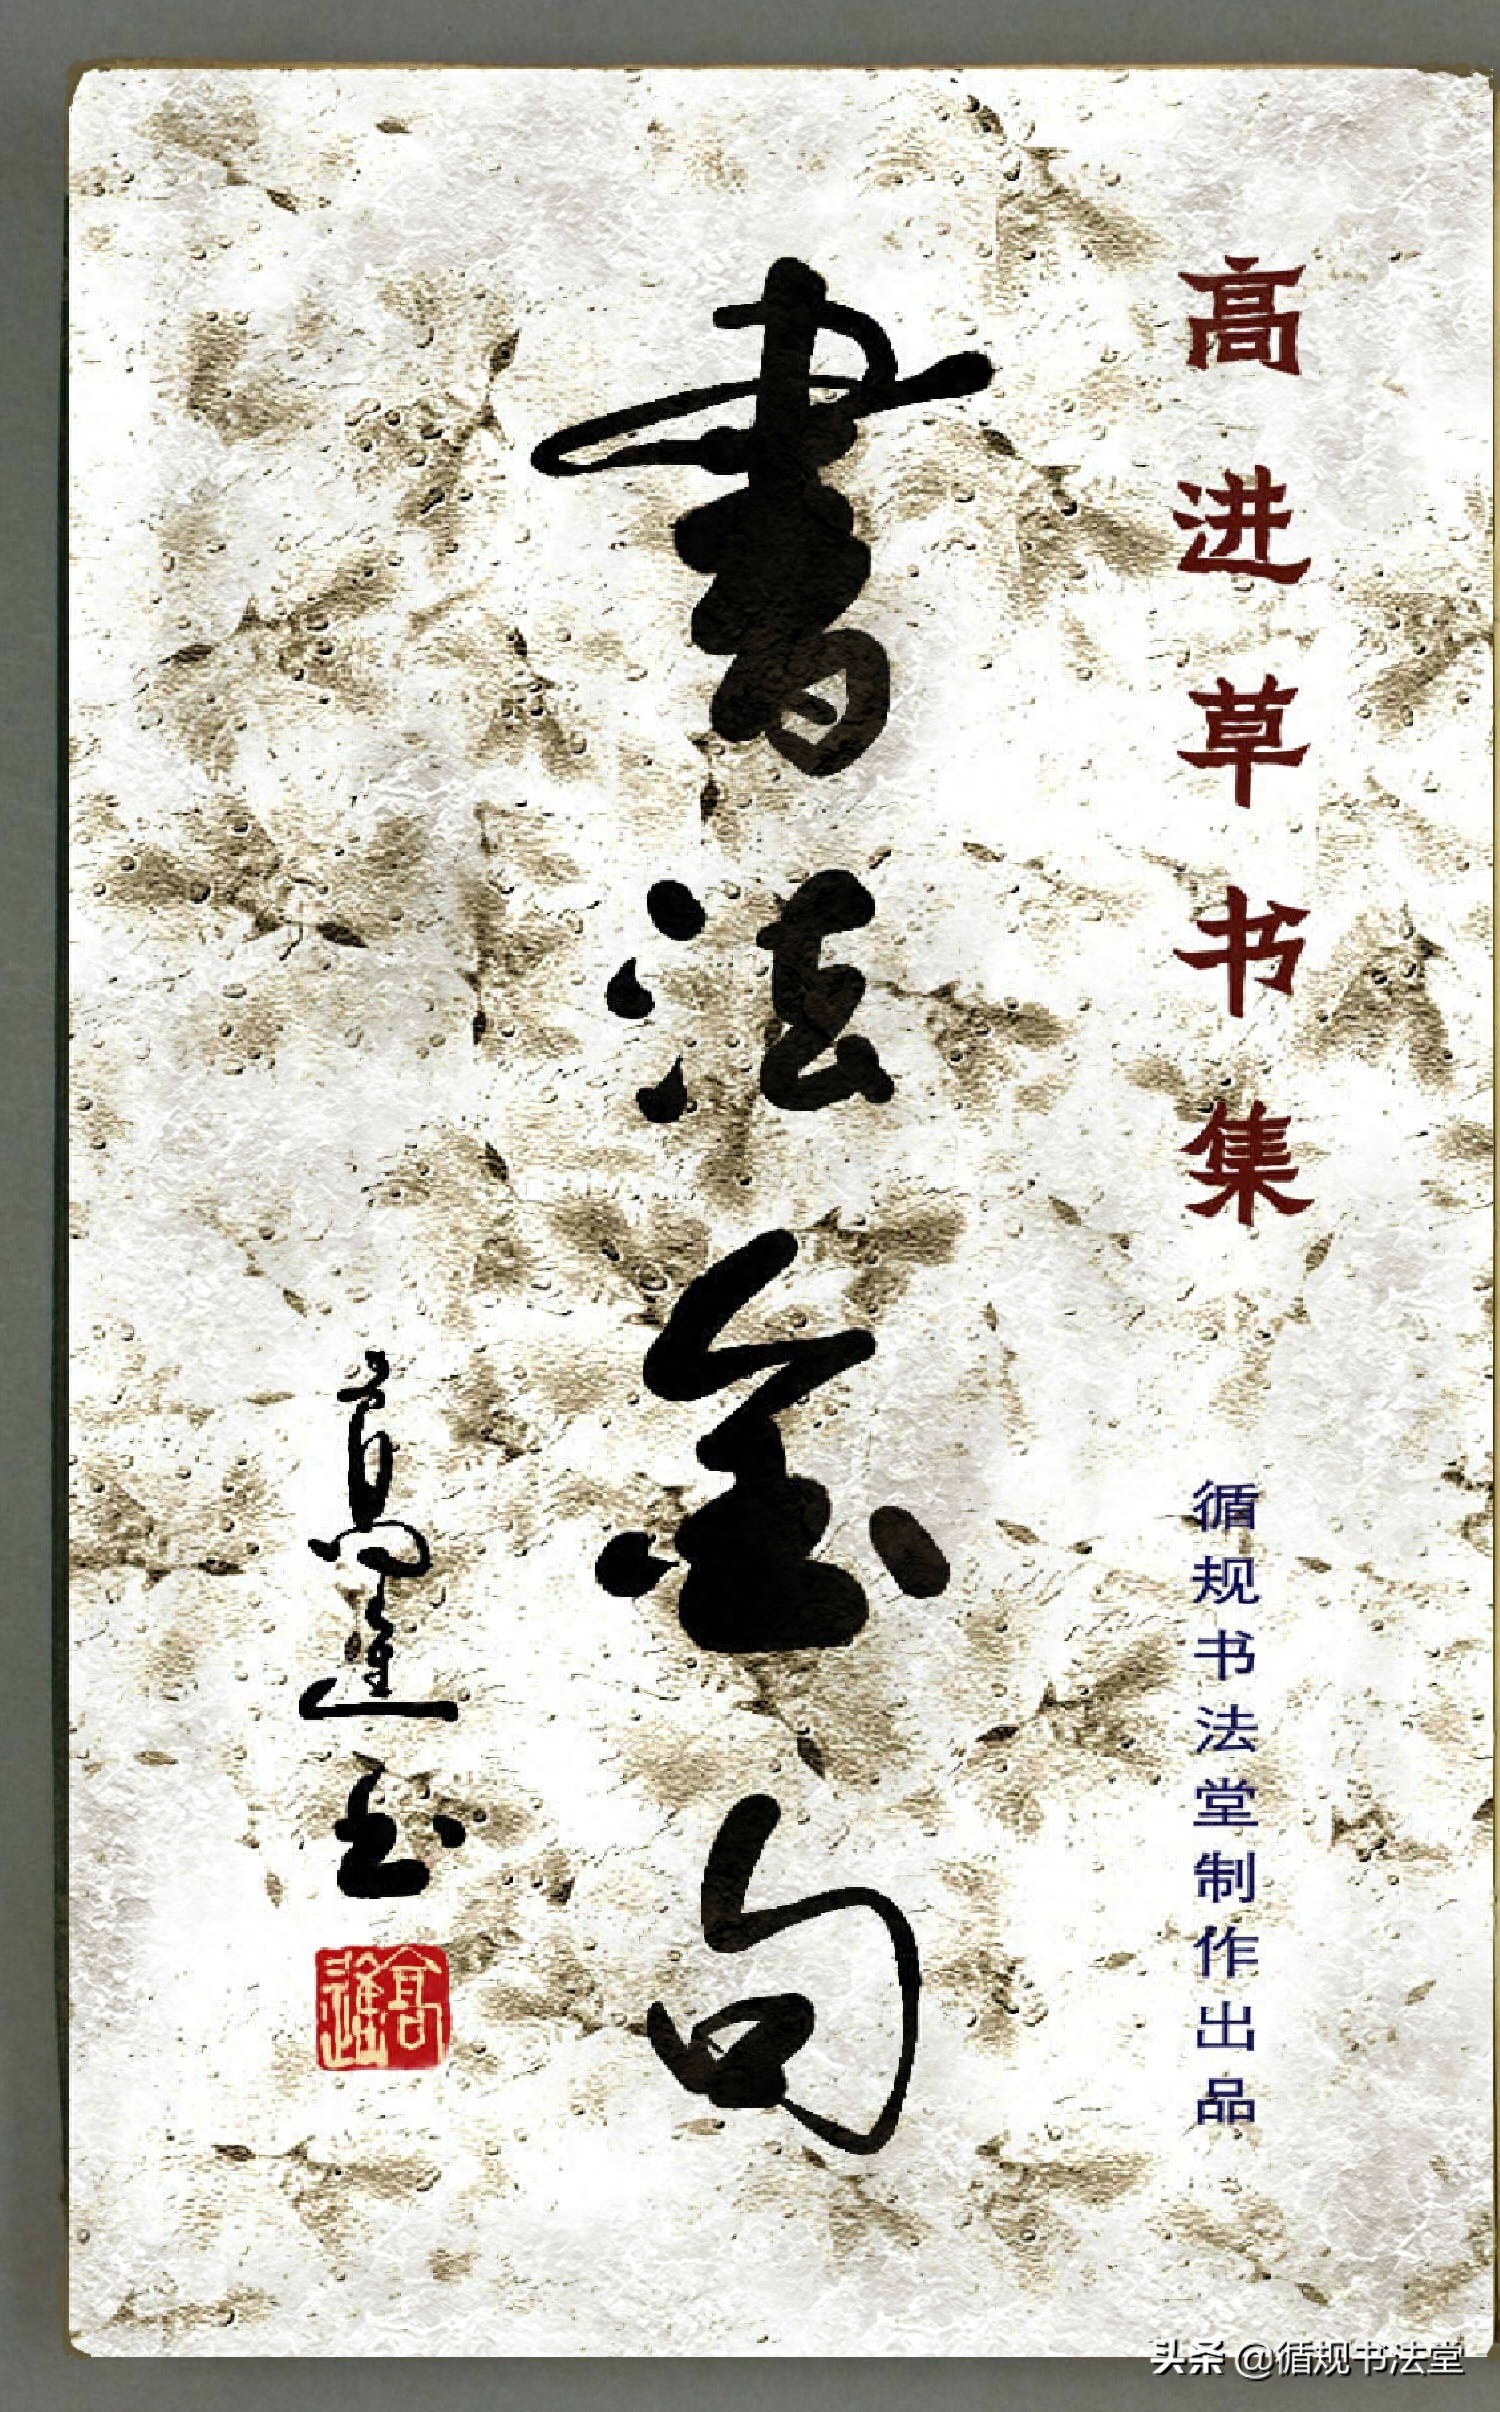 高进草书集
循规书法堂制作出品
書法金句
高進書
高進
头条 @循规书法堂